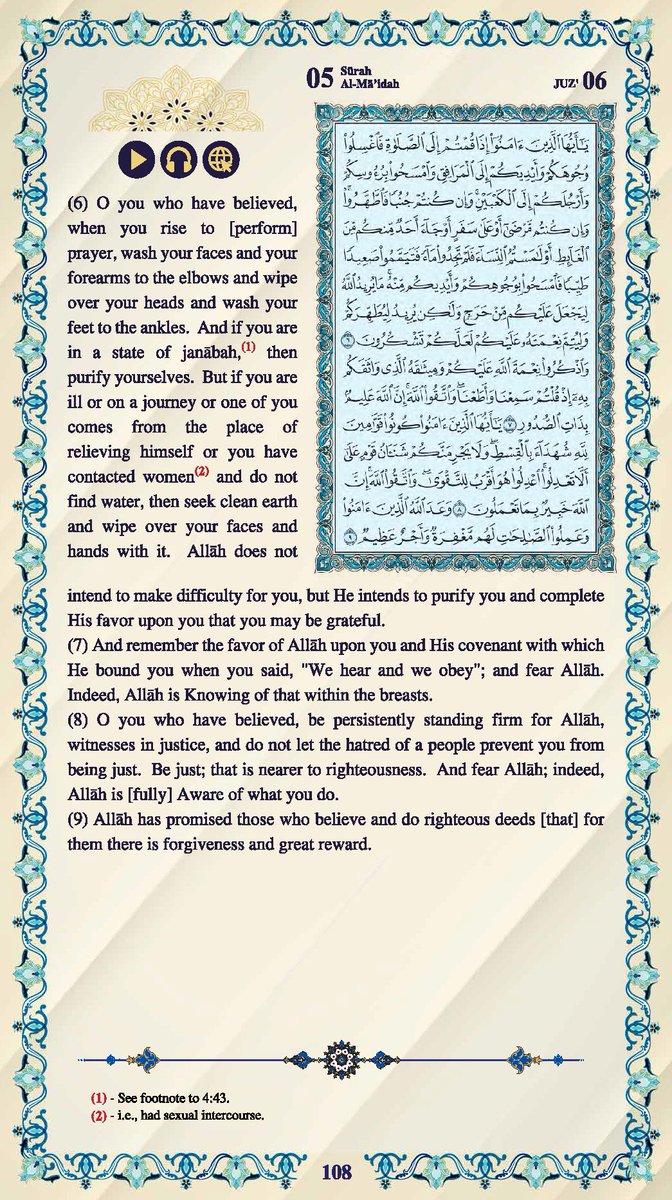 05 Sūrah
Al-Mā'idah
JUZ' 06
يَـٰٓأَيُّهَا ٱلَّذِينَ ءَامَنُوٓا۟ إِذَا قُمْتُمْ إِلَى ٱلصَّلَوٰةِ فَٱغْسِلُوا۟
وُجُوهَكُمْ وَأَيْدِيَكُمْ إِلَى ٱلْمَرَافِقِ وَٱمْسَحُوا۟ بِرُءُوسِكُمْ
وَأَرْجُلَكُمْ إِلَى ٱلْكَعْبَيْنِ ۚ وَإِن كُنتُمْ جُنُبًا فَٱطَّهَّرُوا۟ ۚ
وَإِن كُنتُم مَّرْضَىٰٓ أَوْ عَلَىٰ سَفَرٍ أَوْ جَآءَ أَحَدٌ مِّنكُم مِّنَ
ٱلْغَآئِطِ أَوْ لَـٰمَسْتُمُ ٱلنِّسَآءَ فَلَمْ تَجِدُوا۟ مَآءً فَتَيَمَّمُوا۟ صَعِيدًا
طَيِّبًا فَٱمْسَحُوا۟ بِوُجُوهِكُمْ وَأَيْدِيكُم مِّنْهُ ۚ مَا يُرِيدُ ٱللَّهُ
لِيَجْعَلَ عَلَيْكُم مِّنْ حَرَجٍ وَلَـٰكِن يُرِيدُ لِيُطَهِّرَكُمْ
وَلِيُتِمَّ نِعْمَتَهُۥ عَلَيْكُمْ لَعَلَّكُمْ تَشْكُرُونَ ٦
وَٱذْكُرُوا۟ نِعْمَةَ ٱللَّهِ عَلَيْكُمْ وَمِيثَـٰقَهُ ٱلَّذِى وَاثَقَكُم
بِهِۦٓ إِذْ قُلْتُمْ سَمِعْنَا وَأَطَعْنَا ۖ وَٱتَّقُوا۟ ٱللَّهَ ۚ إِنَّ ٱللَّهَ عَلِيمٌۢ
بِذَاتِ ٱلصُّدُورِ ٧ يَـٰٓأَيُّهَا ٱلَّذِينَ ءَامَنُوا۟ كُونُوا۟ قَوَّٰمِينَ
لِلَّهِ شُهَدَآءَ بِٱلْقِسْطِ ۖ وَلَا يَجْرِمَنَّكُمْ شَنَـَٔانُ قَوْمٍ عَلَىٰٓ
أَلَّا تَعْدِلُوا۟ ۚ ٱعْدِلُوا۟ هُوَ أَقْرَبُ لِلتَّقْوَىٰ ۖ وَٱتَّقُوا۟ ٱللَّهَ ۚ إِنَّ
ٱللَّهَ خَبِيرٌۢ بِمَا تَعْمَلُونَ ٨ وَعَدَ ٱللَّهُ ٱلَّذِينَ ءَامَنُوا۟
وَعَمِلُوا۟ ٱلصَّـٰلِحَـٰتِ ۙ لَهُم مَّغْفِرَةٌ وَأَجْرٌ عَظِيمٌ ٩
(6) O you who have believed,
when you rise to [perform]
prayer, wash your faces and your
forearms to the elbows and wipe
over your heads and wash your
feet to the ankles. And if you are
in a state of janābah,(1) then
purify yourselves. But if you are
ill or on a journey or one of you
comes from the place of
relieving himself or you have
contacted women(2) and do not
find water, then seek clean earth
and wipe over your faces and
hands with it. Allāh does not
intend to make difficulty for you, but He intends to purify you and complete
His favor upon you that you may be grateful.
(7) And remember the favor of Allāh upon you and His covenant with which
He bound you when you said, "We hear and we obey"; and fear Allāh.
Indeed, Allāh is Knowing of that within the breasts.
(8) O you who have believed, be persistently standing firm for Allāh,
witnesses in justice, and do not let the hatred of a people prevent you from
being just. Be just; that is nearer to righteousness. And fear Allāh; indeed,
Allāh is [fully] Aware of what you do.
(9) Allāh has promised those who believe and do righteous deeds [that] for
them there is forgiveness and great reward.
(1) - See footnote to 4:43.
(2) - i.e., had sexual intercourse.
108